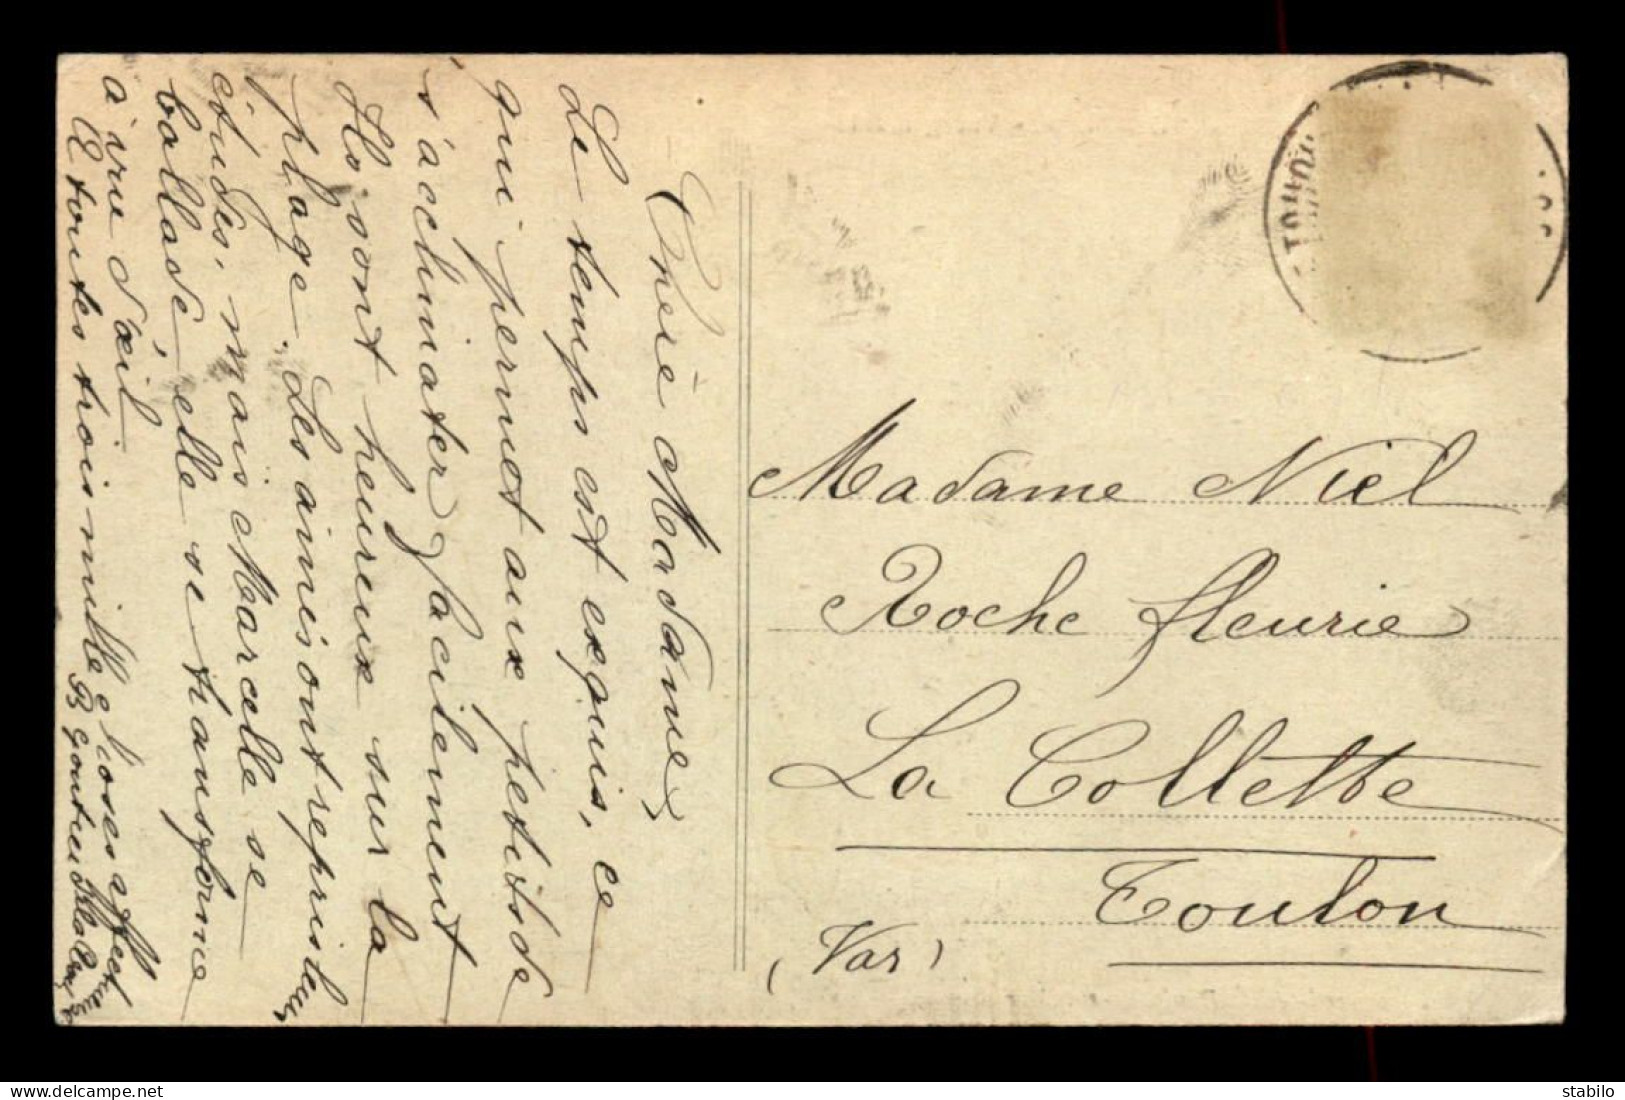 Chère Madame
Le temps est exquis, ce
qui permet aux petits de
s'acclimater facilement
Ils sont heureux sur la
plage. Les aines ont repris leurs
études, mais Marcelle se
ballade - elle se transforme
à vue d'œil
Et toutes trois mille choses affectueuses
B Gontier
Madame Niel
Roche fleurie
La Collette
Toulon
(Var)
delcampe.net
stabilo